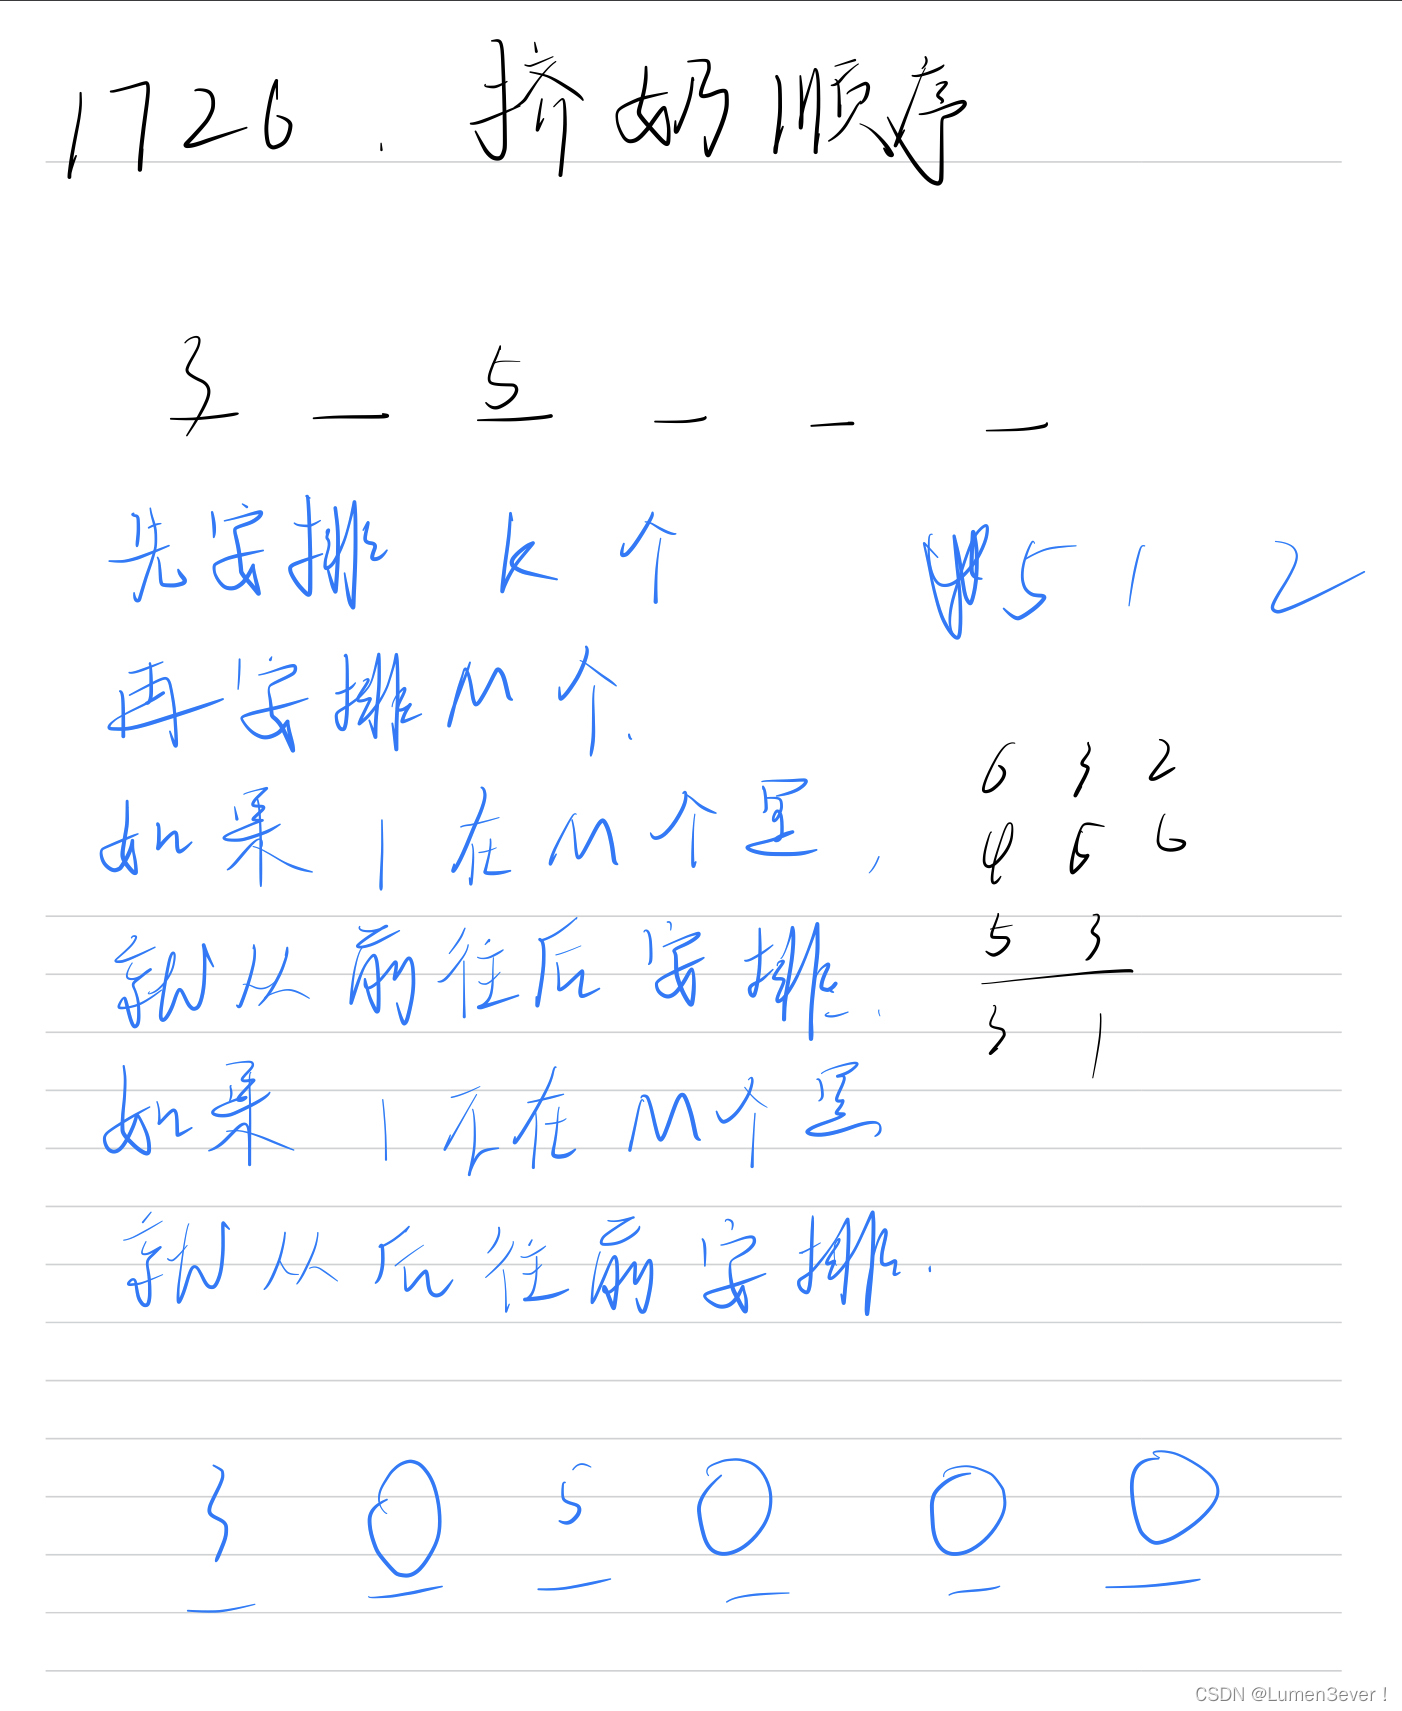 1726. 挤奶顺序
3 _ 5 _ _ _
先安排 K 个
5 1 2
再安排 M 个.
如果 1 在 M 个里,
就从前往后安排.
6 3 2
4 5 6
5 3
3 1
如果 1 不在 M 个里
就从后往前安排.
3 0 5 0 0 0
CSDN @Lumen3ever！